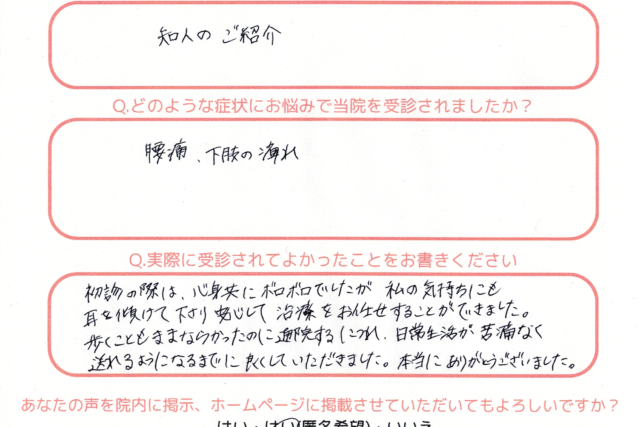 知人の ご紹介
Q.どのような症状にお悩みで当院を受診されましたか？
腰痛、下肢の痺れ
Q.実際に受診されてよかったことをお書きください
初診の際は、心身共にボロボロでしたが 私の気持ちにも
耳を傾けて下さり 安心して 治療をお任せすることができました。
歩くこともままならなかったのに通院するにつれ、日常生活が 苦痛なく
送れるようになるまでに 良くしていただきました。本当に ありがとうございました。
あなたの声を院内に掲示、ホームページに掲載させていただいてもよろしいですか？
はい・はい(匿名希望)・いいえ